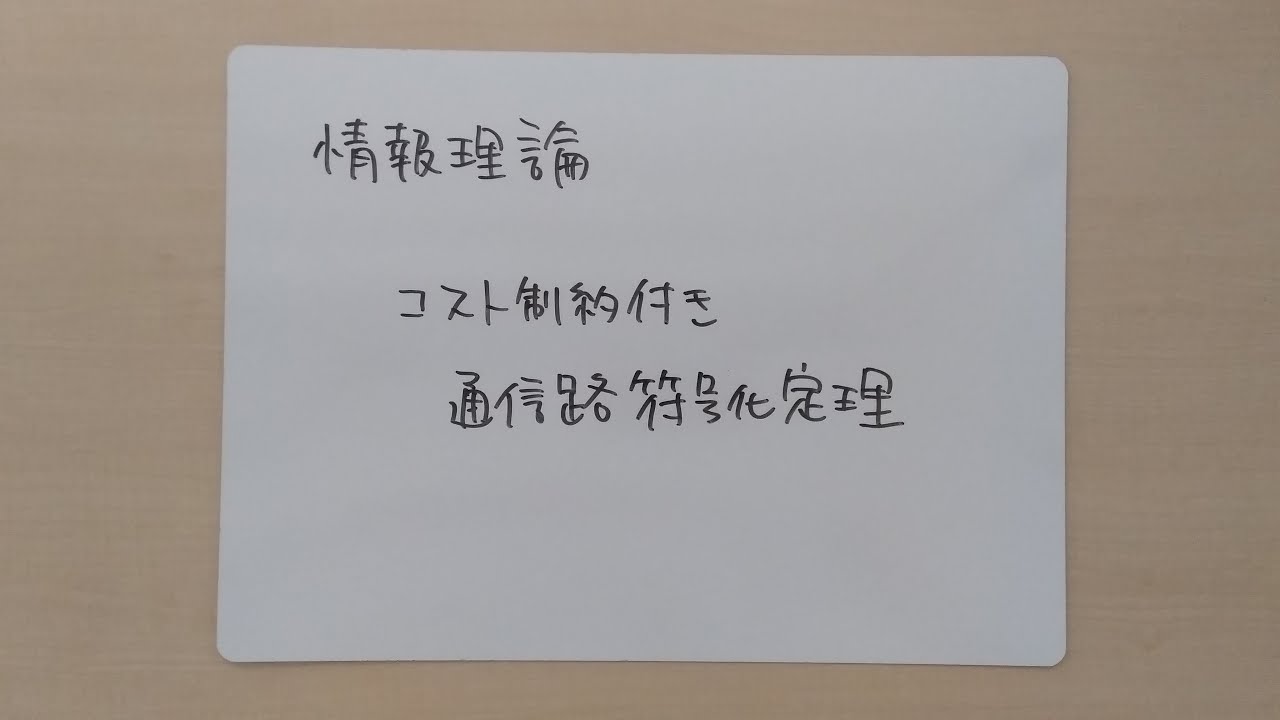 情報理論
コスト制約付き
通信路符号化定理